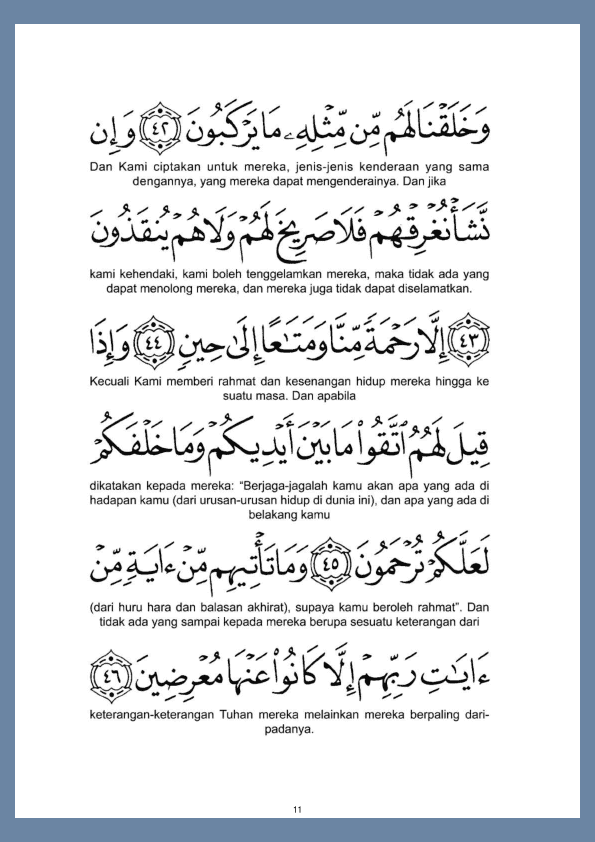 وَخَلَقْنَا لَهُم مِّن مِّثْلِهِۦ مَا يَرْكَبُونَ ﴿٤٢﴾ وَإِن
Dan Kami ciptakan untuk mereka, jenis-jenis kenderaan yang sama
dengannya, yang mereka dapat mengenderainya. Dan jika
نَّشَأْ نُغْرِقْهُمْ فَلَا صَرِيخَ لَهُمْ وَلَا هُمْ يُنقَذُونَ
kami kehendaki, kami boleh tenggelamkan mereka, maka tidak ada yang
dapat menolong mereka, dan mereka juga tidak dapat diselamatkan.
﴿٤٣﴾ إِلَّا رَحْمَةً مِّنَّا وَمَتَٰعًا إِلَىٰ حِينٍ ﴿٤٤﴾ وَإِذَا
Kecuali Kami memberi rahmat dan kesenangan hidup mereka hingga ke
suatu masa. Dan apabila
قِيلَ لَهُمُ ٱتَّقُوا۟ مَا بَيْنَ أَيْدِيكُمْ وَمَا خَلْفَكُمْ
dikatakan kepada mereka: “Berjaga-jagalah kamu akan apa yang ada di
hadapan kamu (dari urusan-urusan hidup di dunia ini), dan apa yang ada di
belakang kamu
لَعَلَّكُمْ تُرْحَمُونَ ﴿٤٥﴾ وَمَا تَأْتِيهِم مِّنْ ءَايَةٍ مِّنْ
(dari huru hara dan balasan akhirat), supaya kamu beroleh rahmat”. Dan
tidak ada yang sampai kepada mereka berupa sesuatu keterangan dari
ءَايَٰتِ رَبِّهِمْ إِلَّا كَانُوا۟ عَنْهَا مُعْرِضِينَ ﴿٤٦﴾
keterangan-keterangan Tuhan mereka melainkan mereka berpaling dari-
padanya.
11